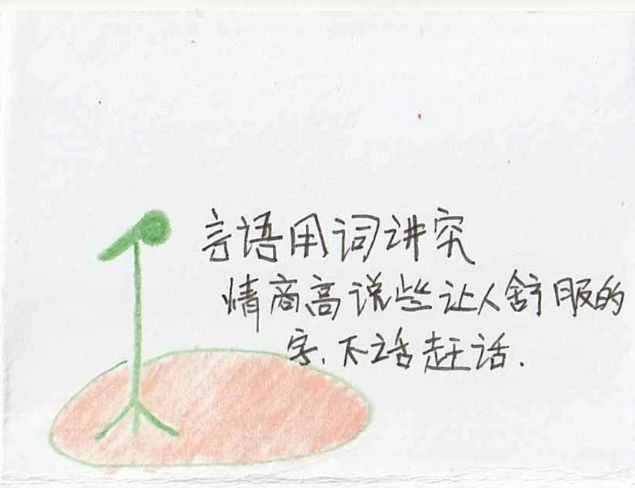 言语用词讲究
情商高说些让人舒服的
字,不话赶话.